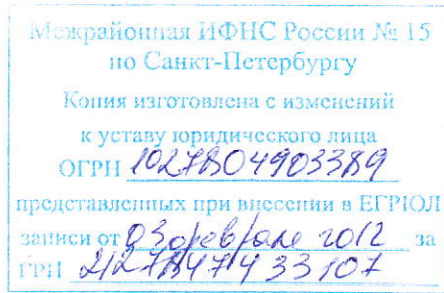 Межрайонная ИФНС России № 15
по Санкт-Петербургу
Копия изготовлена с изменений
к уставу юридического лица
ОГРН 1027804903389
представленных при внесении в ЕГРЮЛ
записи от 03 февраля 2012 за
ГРН 2127847433107